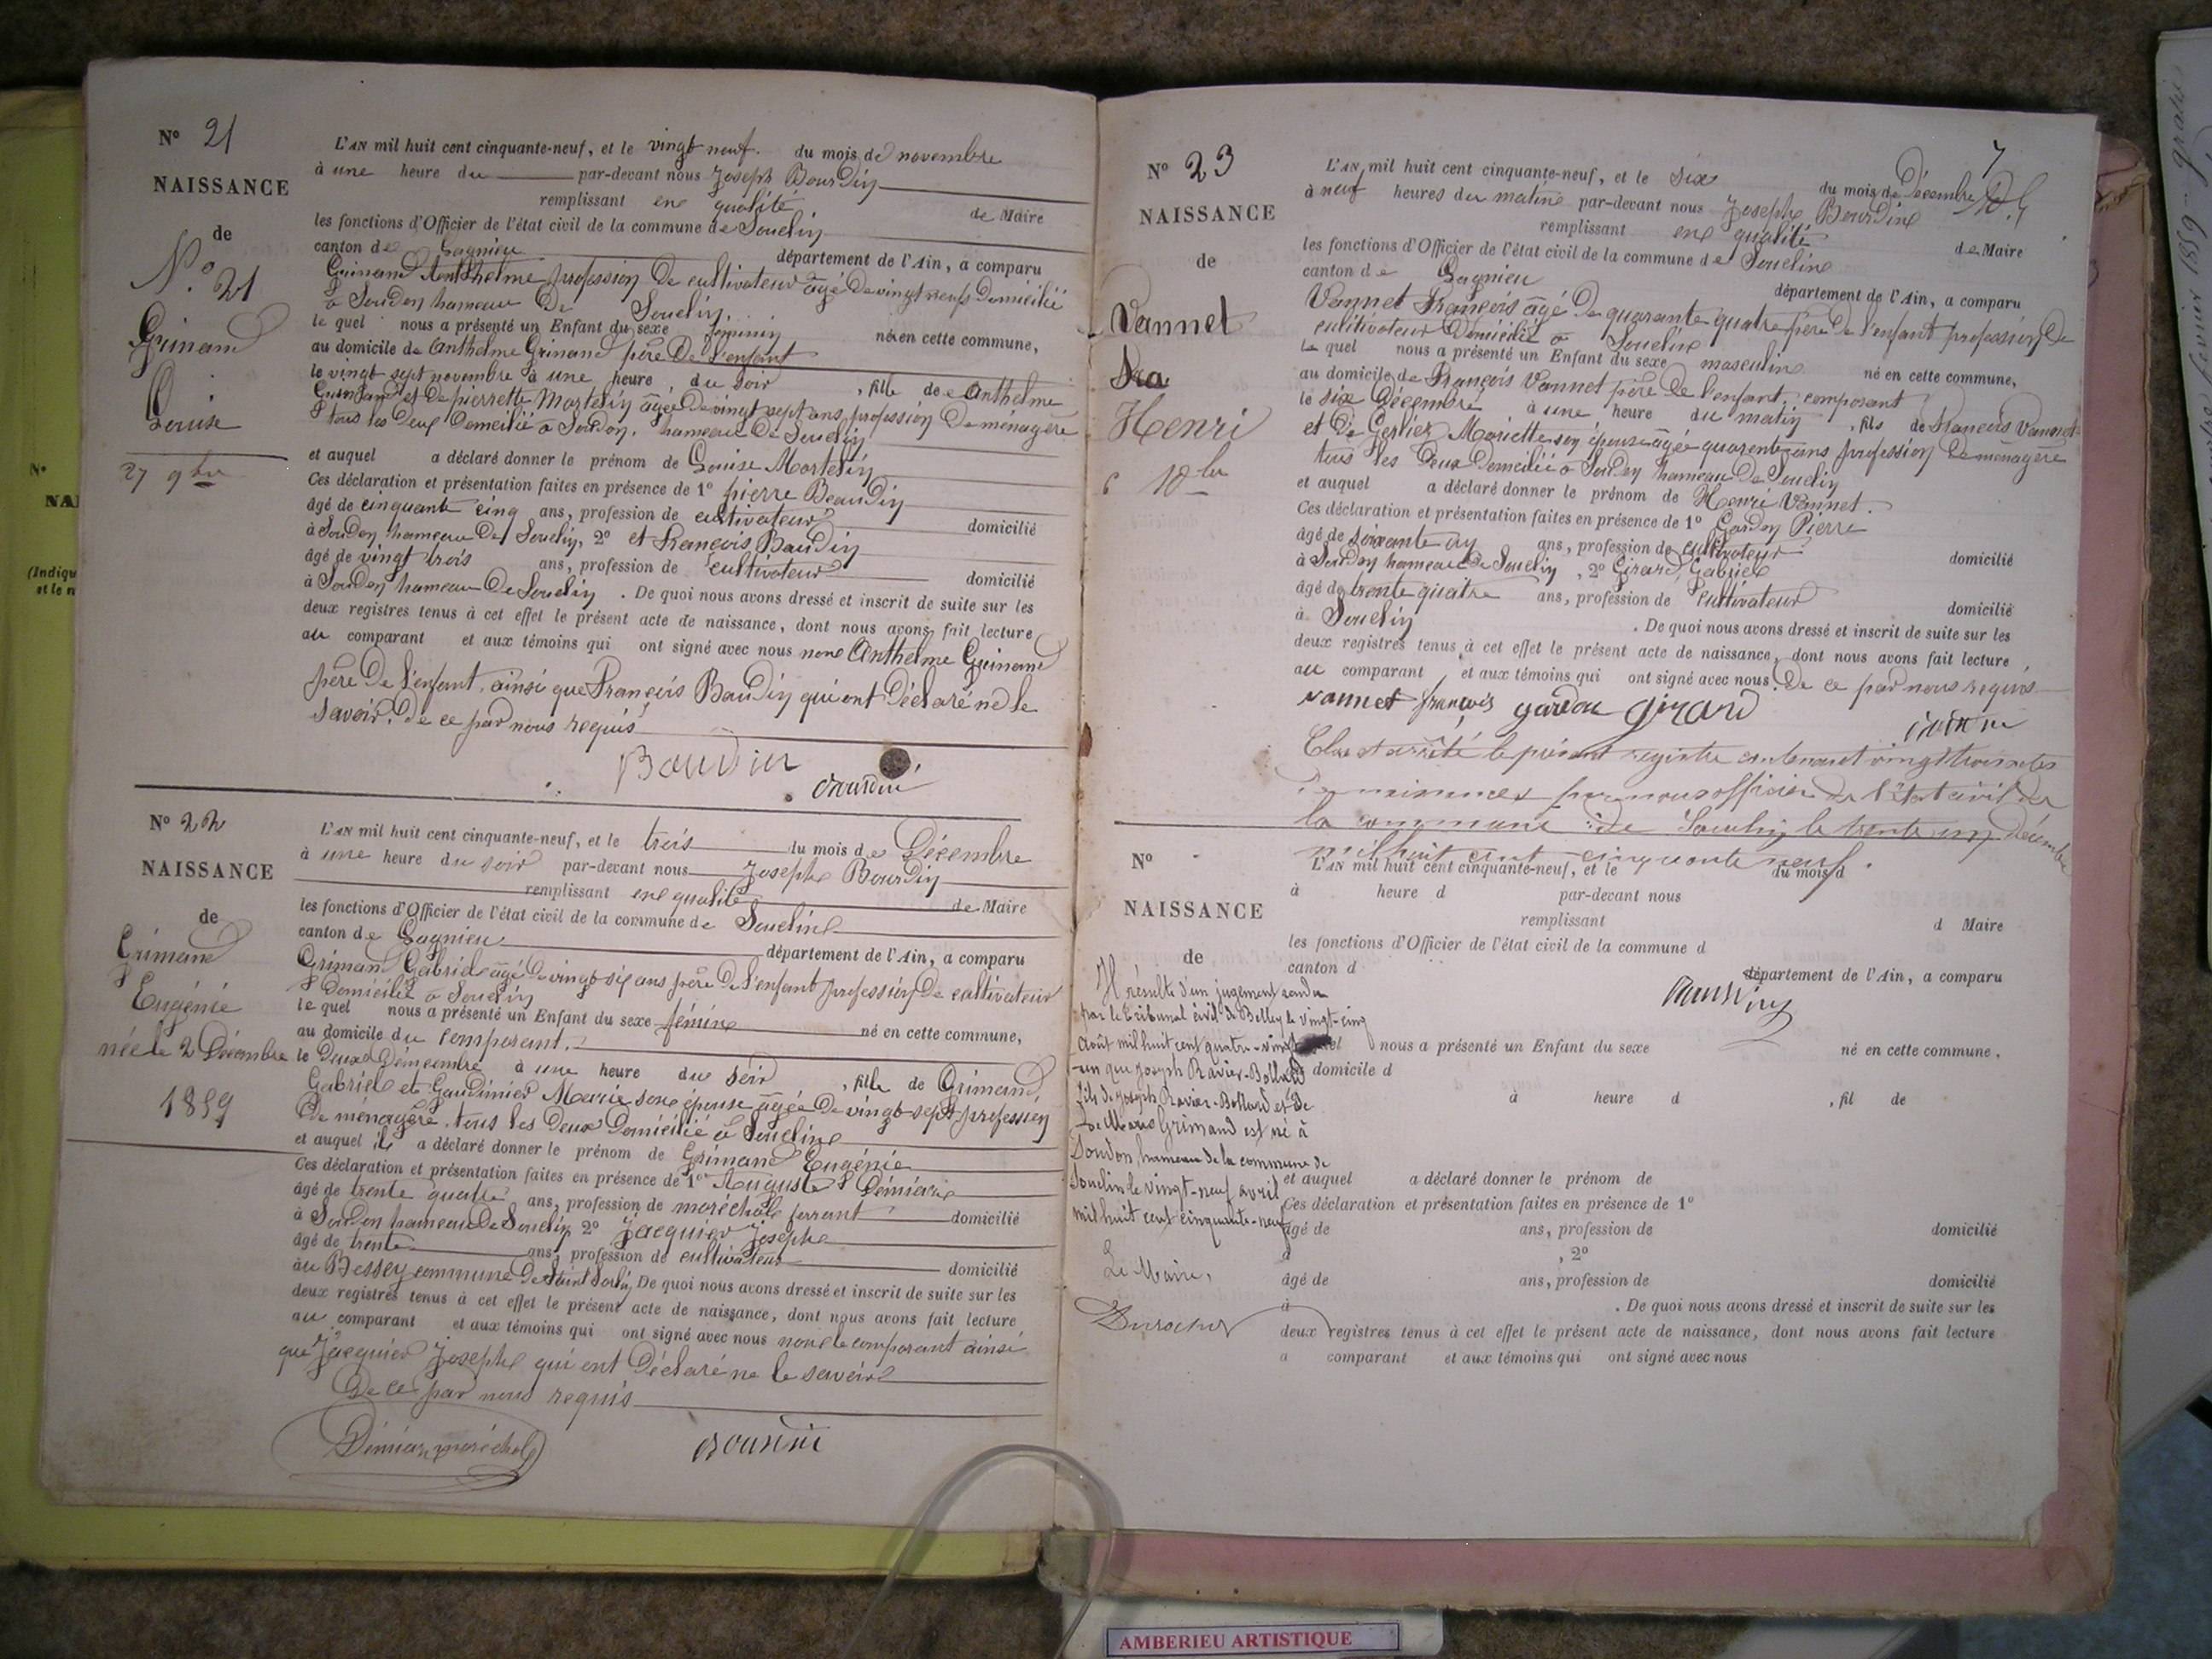 N° 21
NAISSANCE
de
N.° 21
Grimand
Louise
27 9bre
L'AN mil huit cent cinquante-neuf, et le vingt neuf du mois de novembre
à une heure du par-devant nous Joseph Bourdin
remplissant en qualité de Maire
les fonctions d'Officier de l'état civil de la commune de Souclin
canton de Lagnieu département de l'Ain, a comparu
Grimand Anthelme profession De cultivateur âgé De vingt neuf Domicilié
à Soudon hameau De Souclin.
le quel nous a présenté un Enfant du sexe feminin né en cette commune,
au domicile de Anthelme Grimand père De l'enfant
le vingt sept novembre à une heure du soir, fille de Anthelme
Grimand et De pierrette Martelin âgée De vingt sept ans, profession De ménagère
tous les Deux Domicilié à Soudon, hameau De Souclin
et auquel a déclaré donner le prénom de Louise Martelin
Ces déclaration et présentation faites en présence de 1° pierre Beaudin
âgé de cinquante cinq ans, profession de cultivateur domicilié
à Soudon hameau De Souclin, 2° et François Baudin
âgé de vingt trois ans, profession de cultivateur domicilié
à Soudon hameau De Souclin. De quoi nous avons dressé et inscrit de suite sur les
deux registres tenus à cet effet le présent acte de naissance, dont nous avons fait lecture
au comparant et aux témoins qui ont signé avec nous non Anthelme Grimand
père De l'enfant, ainsi que François Baudin qui ont Déclaré ne le
savoir. De ce par nous requis
Baudin
N° 22
NAISSANCE
de
Grimand
Eugénie
née le 2 Décembre
1859
L'AN mil huit cent cinquante-neuf, et le trois du mois de Décembre
à une heure du soir par-devant nous Joseph Bourdin
remplissant en qualité de Maire
les fonctions d'Officier de l'état civil de la commune de Souclin
canton de Lagnieu département de l'Ain, a comparu
Grimand Gabriel âgé De vingt six ans père De l'enfant profession De cultivateur
Domicilié à Souclin
le quel nous a présenté un Enfant du sexe féminine né en cette commune,
au domicile du composant.
le Deux à une heure du soir, fille de Grimand
Gabriel et Gaudimier Marie son épouse âgée De vingt sept profession
De ménagère, tous les Deux Domicilié à Souclin
et auquel il a déclaré donner le prénom de Grimand Eugénie
Ces déclaration et présentation faites en présence de 1° Auguste
âgé de trente quatre ans, profession de maréchale ferrant domicilié
à Soudon hameau De Souclin 2° Jacquier Joseph
âgé de trente ans, profession de cultivateur domicilié
au Bessey commune De Saint Sorlin. De quoi nous avons dressé et inscrit de suite sur les
deux registres tenus à cet effet le présent acte de naissance, dont nous avons fait lecture
au comparant et aux témoins qui ont signé avec nous non le comparant ainsi
que Jacquier Joseph qui ont Déclaré ne le savoir
De ce par nous requis
N° 23
NAISSANCE
de
Vannet
Henri
6 10bre
7
L'AN mil huit cent cinquante-neuf, et le six du mois de Décembre
à neuf heures du matin par-devant nous Joseph Bourdin
remplissant en qualité de Maire
les fonctions d'Officier de l'état civil de la commune de Souclin
canton de Lagnieu département de l'Ain, a comparu
Vannet François âgé De quarante quatre père De l'enfant profession De
cultivateur Domicilié à Souclin
le quel nous a présenté un Enfant du sexe masculin né en cette commune,
au domicile de François Vannet père De l'enfant, composant
le six Décembre à une heure du matin, fils de François Vannet
et De Gerlier Mariette son épouse âgée quarente ans profession De ménagère
tous les Deux Domicilié à Soudon hameau De Souclin
et auquel a déclaré donner le prénom de Henri Vannet.
Ces déclaration et présentation faites en présence de 1° Gardon Pierre
âgé de soixante ans, profession de cultivateur domicilié
à Soudon hameau De Souclin, 2° Girard, Gabriel
âgé de trente quatre ans, profession de cultivateur domicilié
à Souclin. De quoi nous avons dressé et inscrit de suite sur les
deux registres tenus à cet effet le présent acte de naissance, dont nous avons fait lecture
au comparant et aux témoins qui ont signé avec nous. De ce par nous requis
vannet françois gardon girard
Clos et arrêté le présent registre contenant vingt trois actes
De naissances par nous officier de l'état civil de
la commune de Souclin le trente un décembre
mil huit cent cinquante neuf.
N°
NAISSANCE
de
L'AN mil huit cent cinquante-neuf, et le du mois d
à heure d par-devant nous
remplissant d Maire
les fonctions d'Officier de l'état civil de la commune d
canton d département de l'Ain, a comparu
nous a présenté un Enfant du sexe né en cette commune,
domicile d
à heure d, fil de
et auquel a déclaré donner le prénom de
Ces déclaration et présentation faites en présence de 1°
âgé de ans, profession de domicilié
à, 2°
âgé de ans, profession de domicilié
à. De quoi nous avons dressé et inscrit de suite sur les
deux registres tenus à cet effet le présent acte de naissance, dont nous avons fait lecture
a comparant et aux témoins qui ont signé avec nous
Il résulte d'un jugement rendu
par le Tribunal civil de Belley le vingt-cinq
août mil huit cent quatre-vingt
-un que Joseph Ravier-Bollard
fils de Joseph Ravier-Bollard et de
Marie Grimand est né à
Soudon, hameau de la commune de
Souclin le vingt-neuf avril
mil huit cent cinquante-neuf
Le Maire,
AMBERIEU ARTISTIQUE